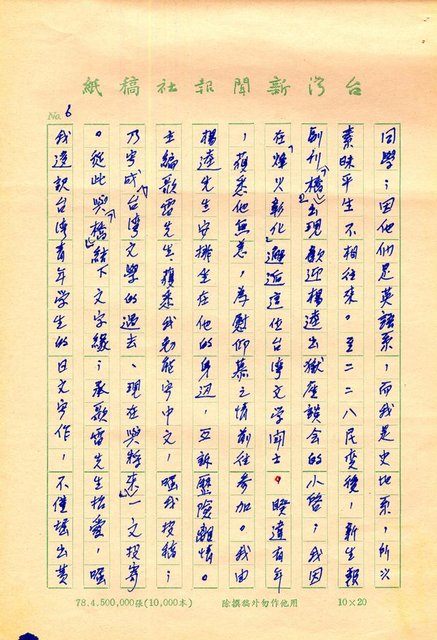 台灣新聞報社稿紙
No. 6
同學；因他們是英語系，而我是史地系，所以
素昧平生不相往來。至二二八民變後，新生報
副刊「橋」出現歡迎楊逵出獄座談會的小啓；我因
在烽火彰化邂逅這位台湾文学鬪士，暌違有年
，獲悉他無恙，為慰仰慕之情前往參加。我由
楊逵先生安排坐在他的身边，互訴歷險離情。
主編歌雷先生獲悉我能寫中文，囑我投稿；
乃寫成「台湾文学的過去、現在與將來」一文投寄
。從此與「橋」結下文字緣；承歌雷先生抬愛，囑
我選訳台湾青年学生的日文寫作，不僅譯出黃
78.4.500,000張(10,000本)
除撰稿外勿作他用
10×20